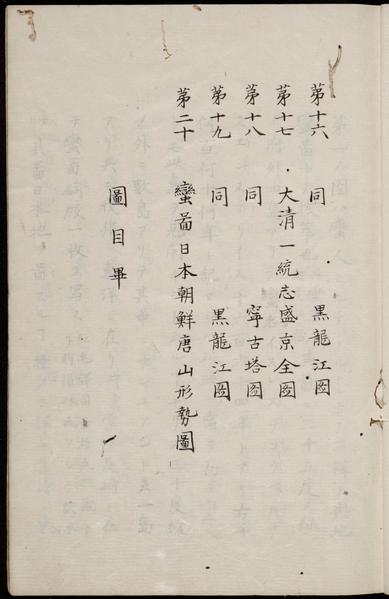 第十六 同 黒龍江図
第十七 大清一統志盛京全図
第十八 同 寧古塔図
第十九 同 黒龍江図
第二十 蠻啚日本朝鮮唐山形勢圖
圖目畢